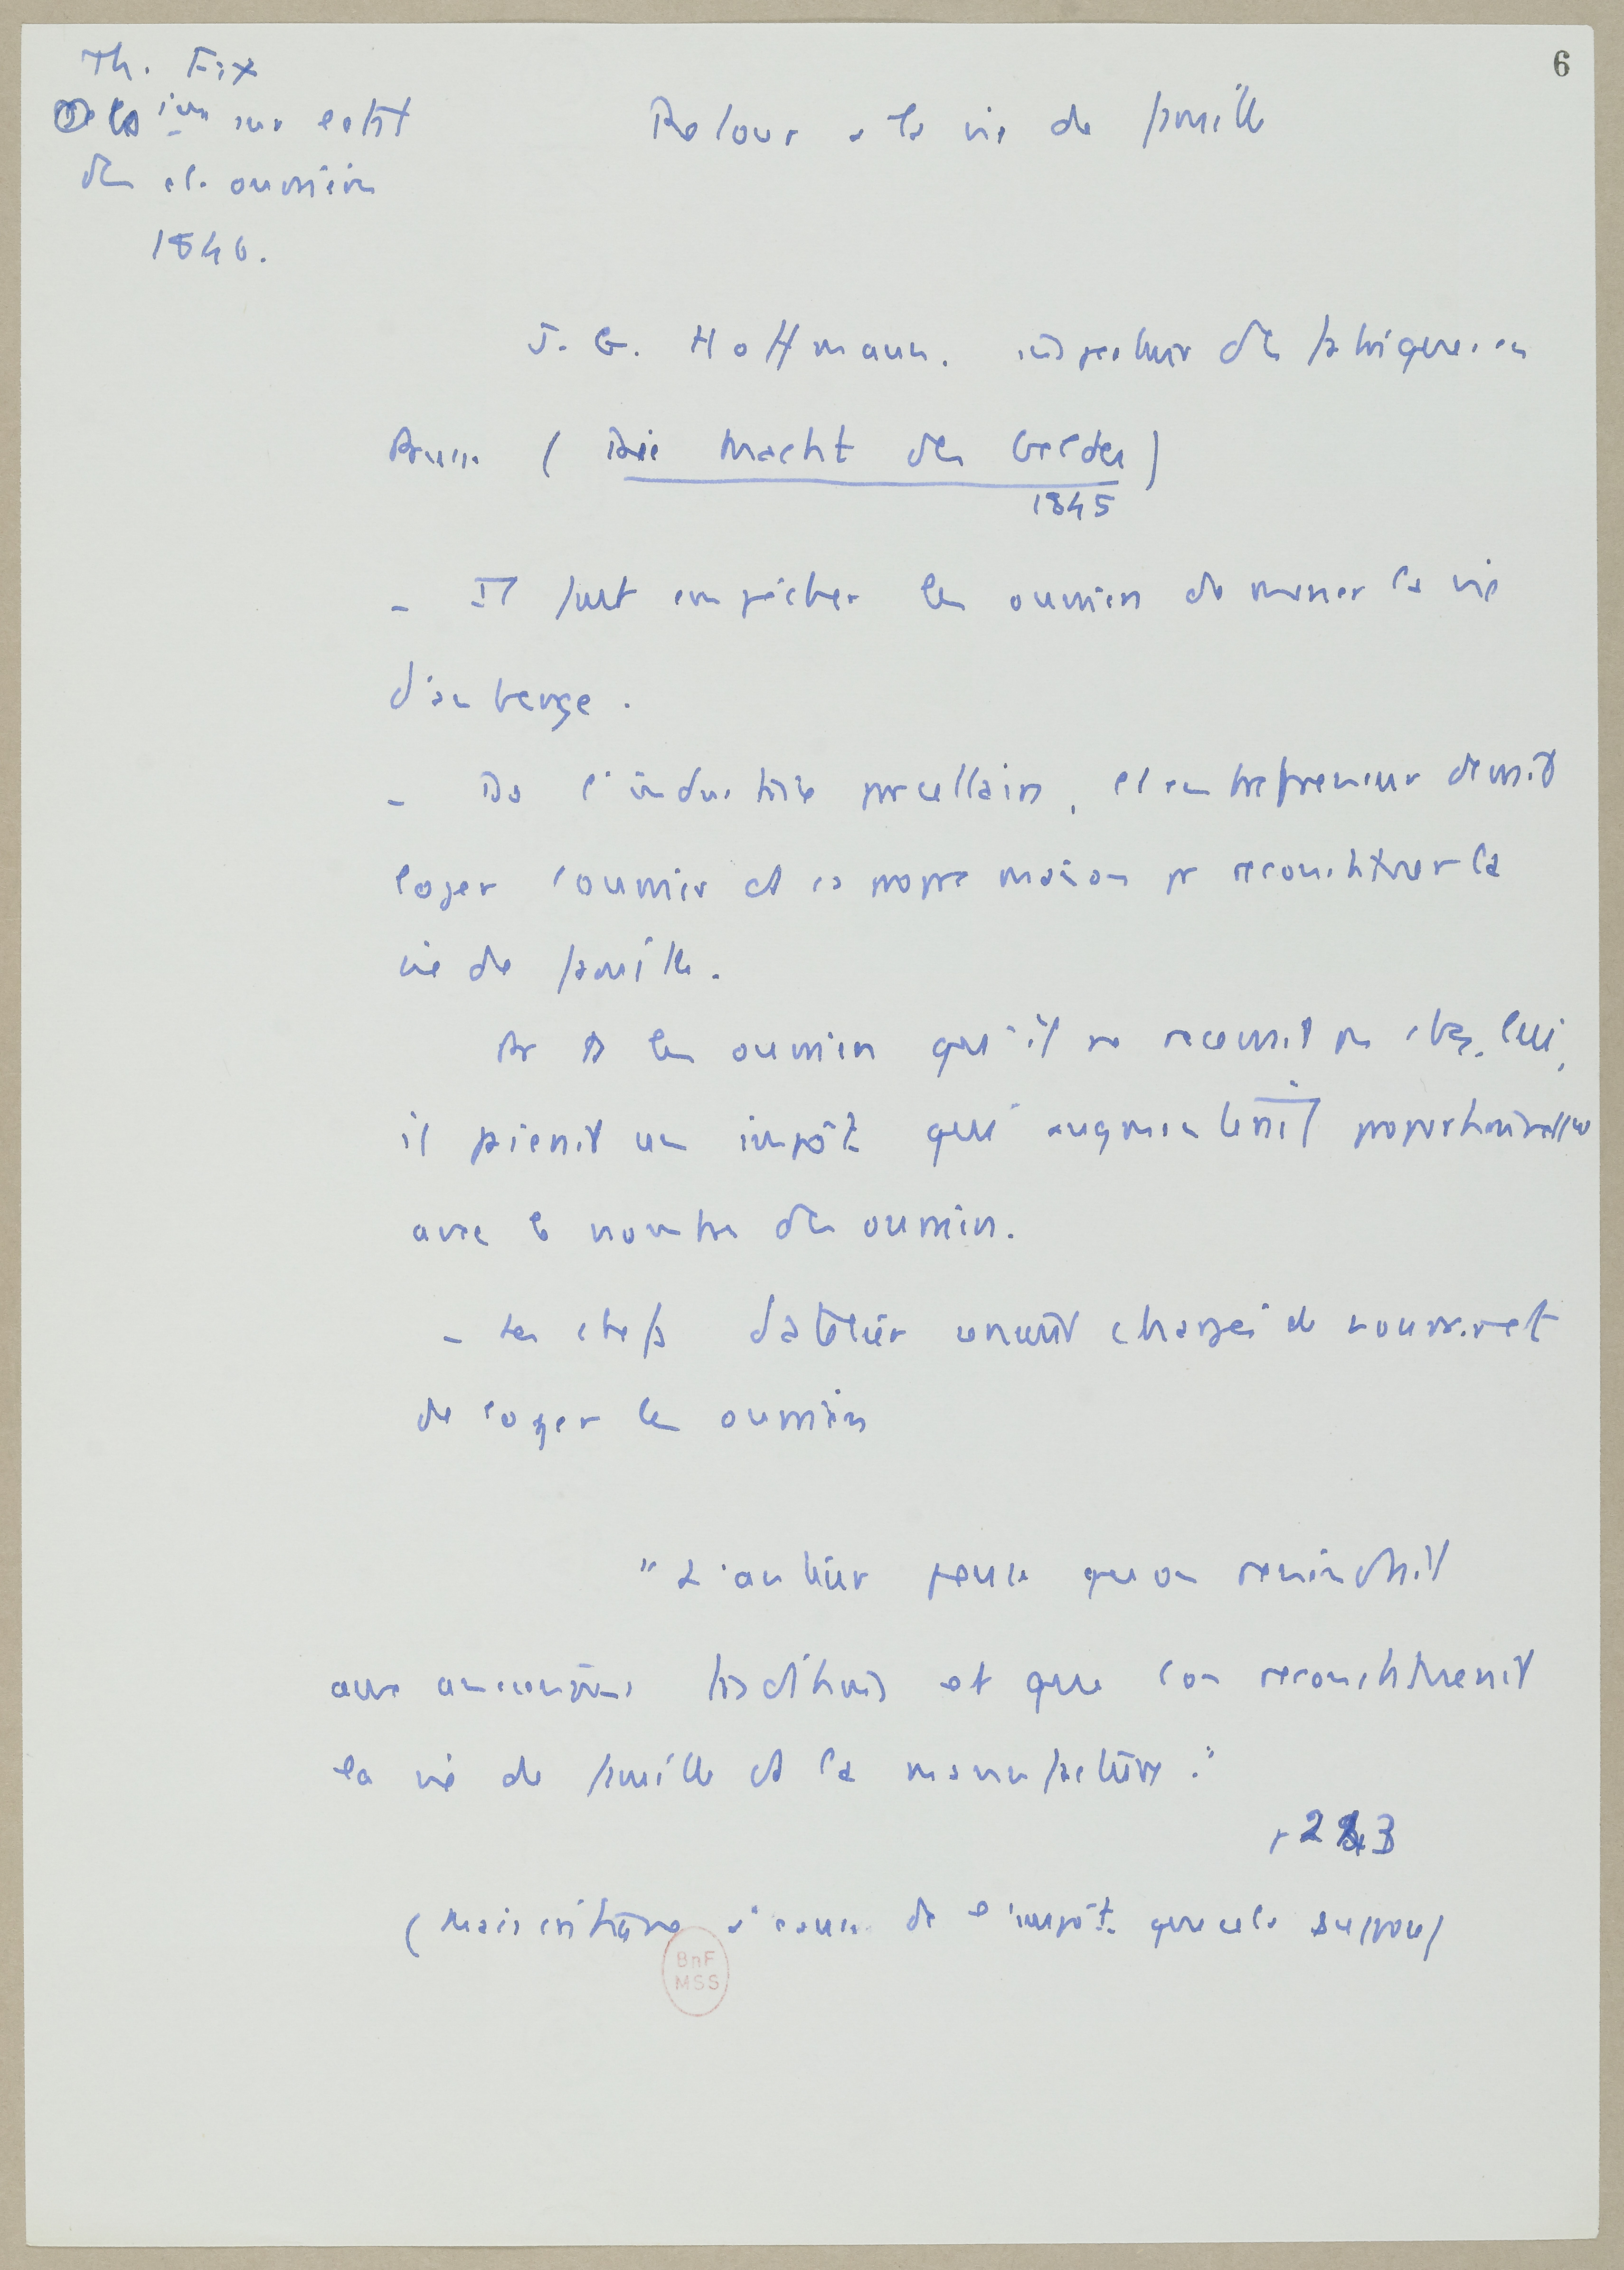 6
Th. Fix
Obs ions sur l'état
des cl. ouvrières
1846.
Retour à la vie de famille
J. G. Hoffmann. inspecteur des fabriques en
Prusse ( Die Macht des Geldes )
1845
- Il faut empêcher les ouvriers de mener la vie
d'auberge.
- Ds l'industrie parcellaire, l'entrepreneur devrait
loger l'ouvrier ds sa propre maison pr reconstituer la
vie de famille.
Pr ts les ouvriers qu'il ne recevrait pas chez lui,
il paierait un impôt qui augmenterait proportionnellt
avec le nombre des ouvriers.
- Les chefs d'atelier seraient chargés de nourrir et
de loger les ouvriers
"L'auteur pense qu'on reviendrait
aux anciennes traditions et que l'on reconstituerait
la vie de famille ds la manufacture."
p 243
(Mais critique à cause de l'impôt que cela suppose)
BnF
MSS